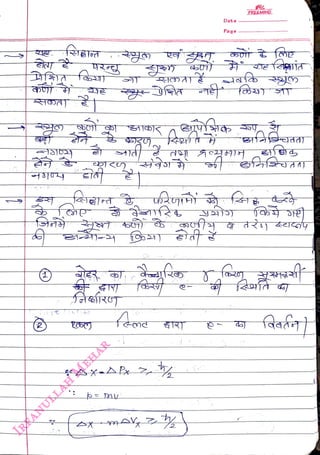 Date
Page
→ यह सिद्धान्त स्थूल एवं सूक्ष्म कणों के लिए
होता है परन्तु सूक्ष्म कणों में यह सिद्धांत
प्रेक्षित किया जा सकता है जबकि स्थूल
कणों में यह प्रेक्षित नहीं किया जा
सकता है।
→ स्थूल कणों का आकार आपेक्षिक रूप से
बड़ी होने के कारण स्थिति में अनिश्चितता
नगण्य हो जाती है तथा द्रव्यमान अधिक
होने के कारण संवेग में भी अनिश्चितता
नगण्य होती है।
→ इस सिद्धान्त के परिणामों को सिद्ध करने
के लिए दो वैचारिक प्रयोग किये गए
जिनमें सूक्ष्म कणों के कणीय व तरंग स्वरूप
की किया होती है
① बोहर का वैचारिक γ किरण सूक्ष्मदर्शी
द्वारा किसी e- की स्थिति का
निर्धारण
② एकल स्लिट द्वारा e- का विवर्तन।
∵ Δx·ΔPx ≥ ħ/2
∵ p = mv
Δx·mΔVx ≥ ħ/2
IRFANULLAH MEHAR